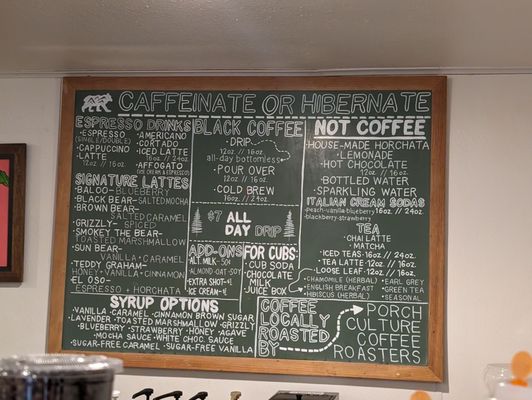 CAFFEINATE OR HIBERNATE
ESPRESSO DRINKS
•ESPRESSO
(SINGLE/DOUBLE)
•CAPPUCCINO
•LATTE
12oz // 16oz
•AMERICANO
•CORTADO
•ICED LATTE
16oz // 24oz
•AFFOGATO
(ICE CREAM & ESPRESSO)
SIGNATURE LATTES
BALOO-BLUEBERRY
BLACK BEAR-SALTED MOCHA
BROWN BEAR-
SALTED CARAMEL
GRIZZLY- SPICED
SMOKEY THE BEAR-
TOASTED MARSHMALLOW
SUN BEAR-
VANILLA•CARAMEL
TEDDY GRAHAM-
HONEY•VANILLA•CINNAMON
EL OSO-
ESPRESSO + HORCHATA
BLACK COFFEE
•DRIP
12oz // 16oz
all-day bottomless
•POUR OVER
12oz // 16oz
•COLD BREW
16oz // 24oz
$7 ALL
DAY DRIP
ADD-ONS
ALT. MILK-50¢
ALMOND-OAT-SOY
EXTRA SHOT-$1
ICE CREAM-$1
FOR CUBS
•CUB SODA
•CHOCOLATE
MILK
•JUICE BOX
SYRUP OPTIONS
•VANILLA•CARAMEL•CINNAMON BROWN SUGAR
•LAVENDER•TOASTED MARSHMALLOW•GRIZZLY
•BLUEBERRY•STRAWBERRY•HONEY•AGAVE
•MOCHA SAUCE•WHITE CHOC. SAUCE
•SUGAR-FREE CARAMEL•SUGAR-FREE VANILLA
NOT COFFEE
•HOUSE-MADE HORCHATA
•LEMONADE
•HOT CHOCOLATE
12oz // 16oz
•BOTTLED WATER
•SPARKLING WATER
ITALIAN CREAM SODAS
•peach•vanilla•blueberry 16oz // 24oz
•blackberry•strawberry
TEA
•CHAI LATTE
•MATCHA
•ICED TEAS-16oz // 24oz
•TEA LATTE-12oz // 16oz
•LOOSE LEAF-12oz // 16oz
•CHAMOMILE (HERBAL) •EARL GREY
•ENGLISH BREAKFAST •GREEN TEA
•HIBISCUS (HERBAL) •SEASONAL
COFFEE
LOCALLY
ROASTED
BY
PORCH
CULTURE
COFFEE
ROASTERS